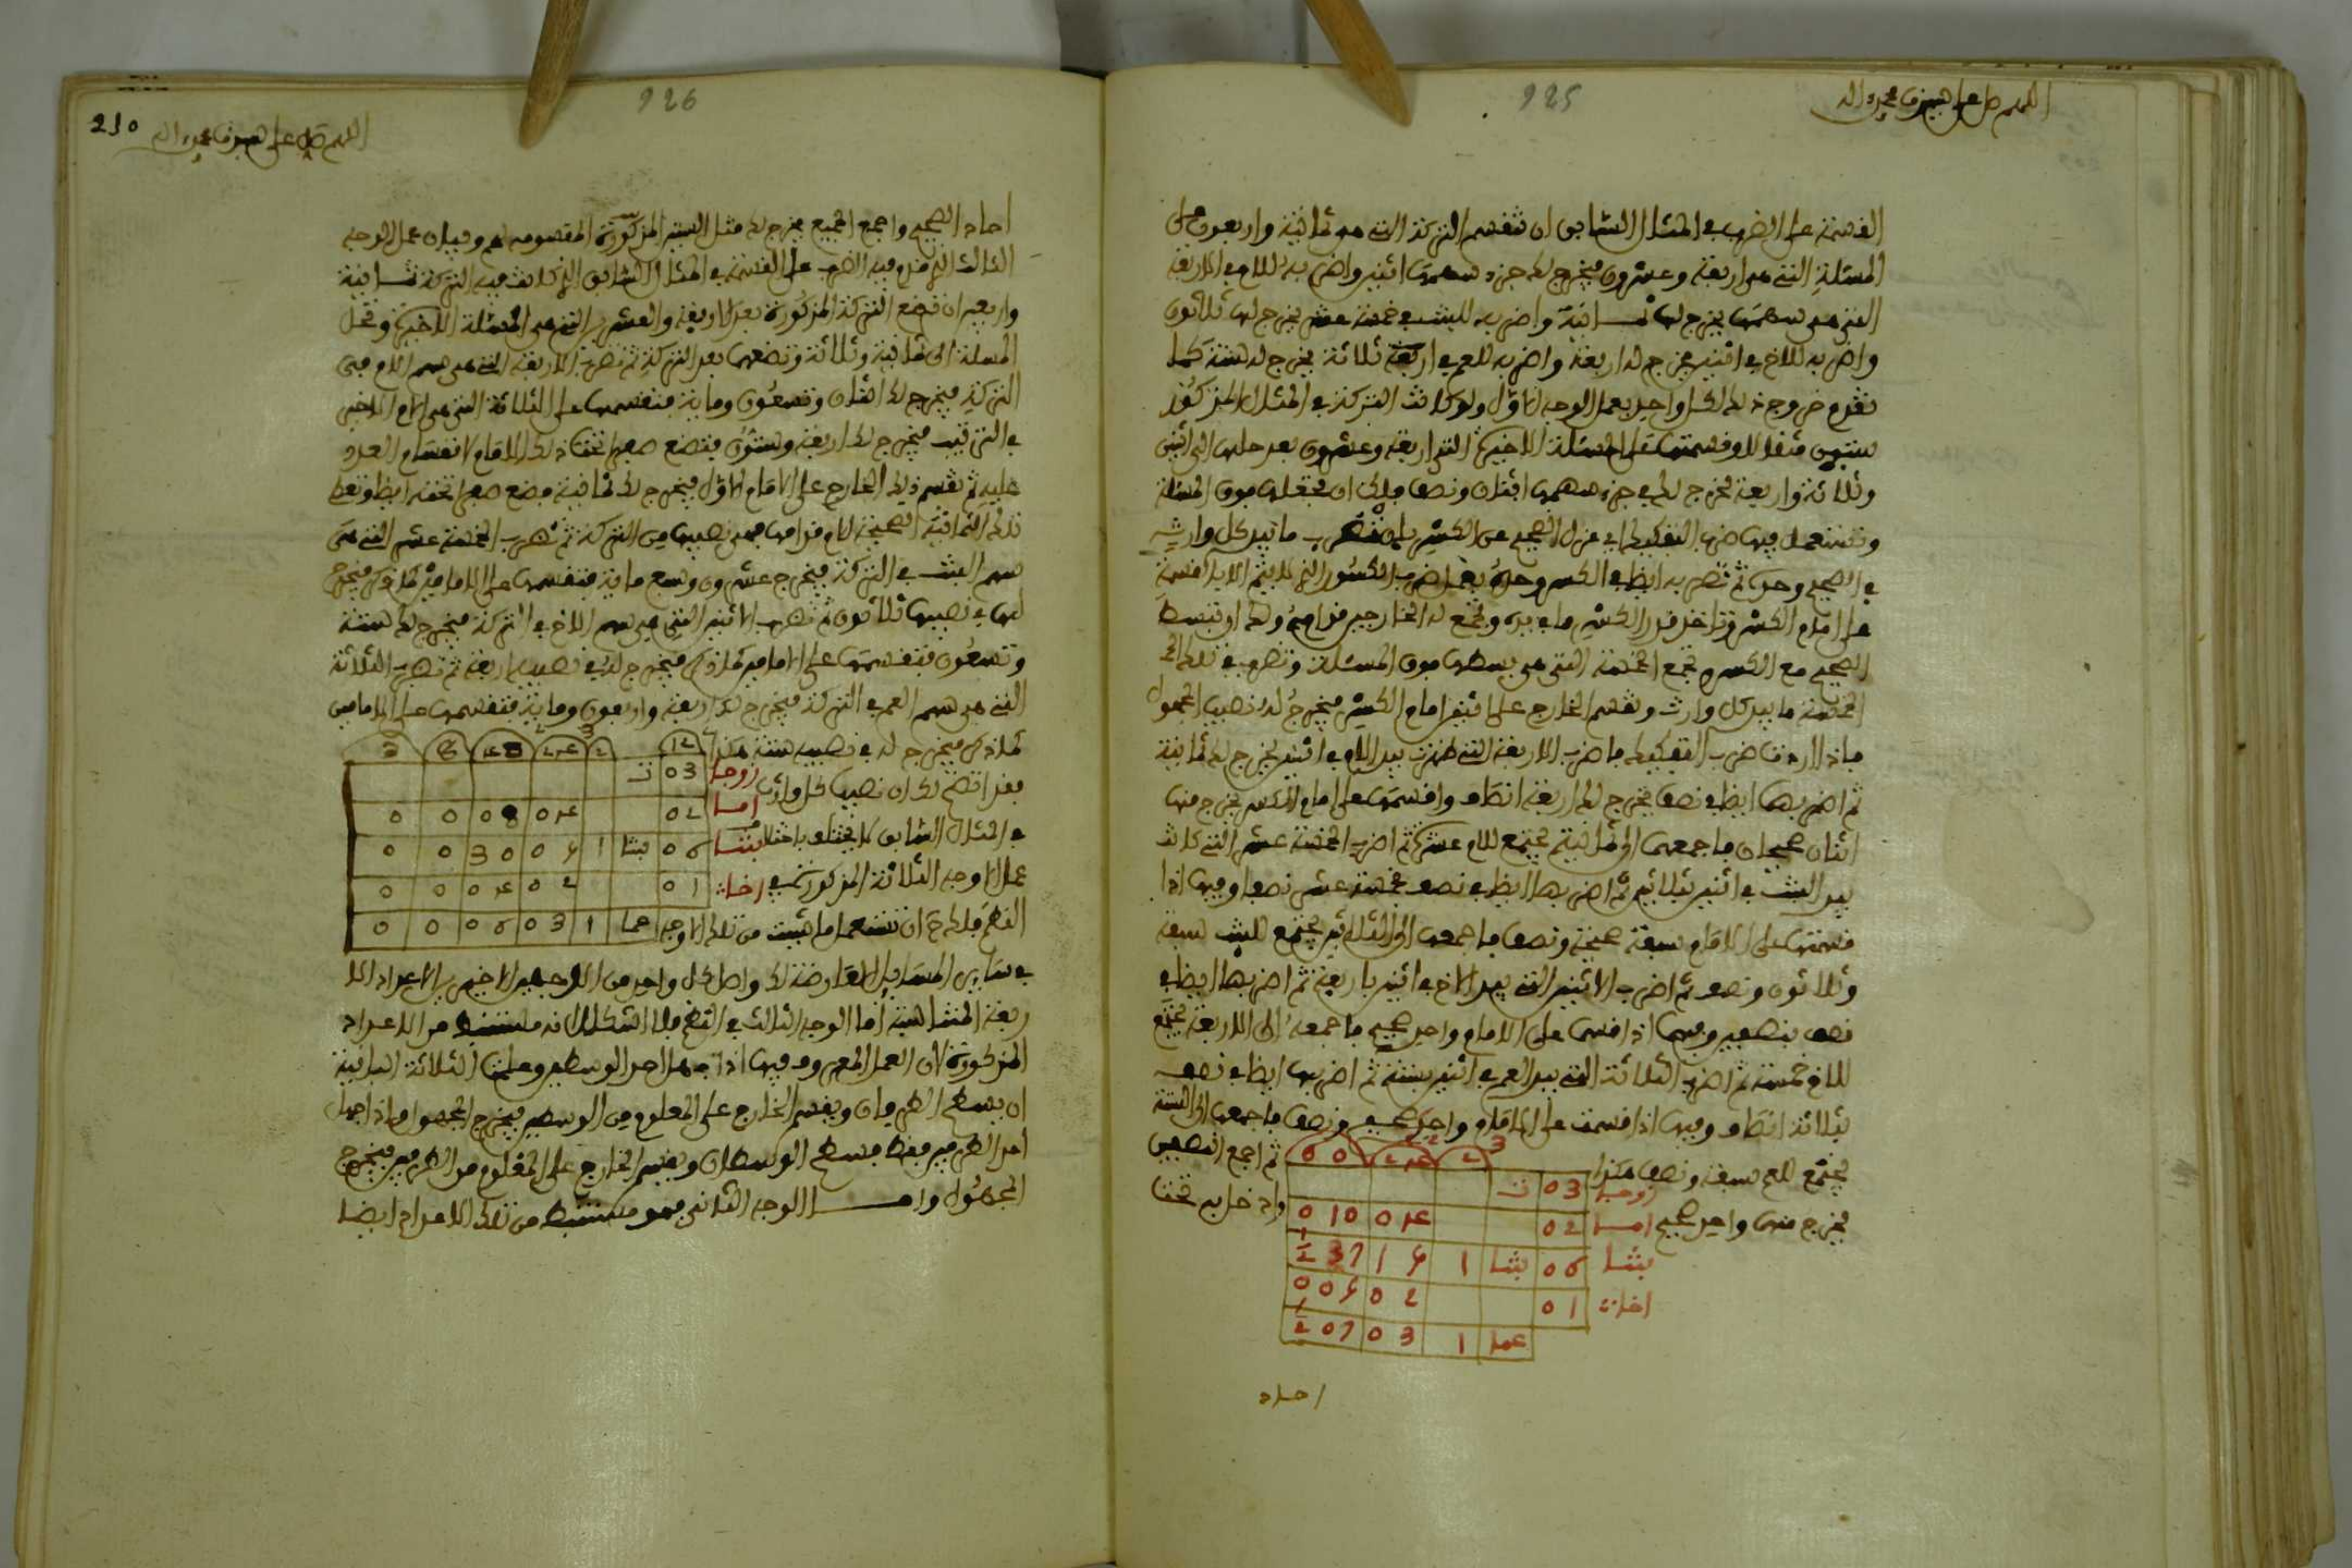 925
اللهم صل على سيدنا محمد وءاله
القسمة على الضرب في المثال السابق ان تقسم التركة التي هي ثمانية واربعون على
المسئلة التي هي اربعة وعشرون يخرج لك جزء سهمها اثنين واضرب به للام في الاربعة
التي هي سهمها يخرج لها ثمانية واضرب به للبنت في خمسة عشر يخرج لها ثلاثون
واضرب به للاخ في اثنين يخرج له اربعة واضرب به للعم في ثلاثة يخرج له ستة كما
تقدم خروج ذلك لكل واحد بعمل الوجه الاول ولو كانت التركة في المثال المذكور
ستين مثقالا وقسمتها على المسئلة الاخيرة التي اربعة وعشرون بعد حلها الى اثنين
وثلاثة واربعة لخرج لك في جزء سهمها اثنان ونصف فلك ان تجعلها فوق المسئلة
وتستعمل فيها ضرب التفكيك اي عزل الصحيح عن الكسر بان تضرب ما بيد كل وارث
في الصحيح وحده ثم تضربه ايضا في الكسر وحده
على امام الكسر وتاخذ قدر الكسر مما في يده وتجمع له الخارجين
الصحيح مع الكسر وتجمع الخمسة التي هي بسطها فوق المسئلة وتضرب في تلك
الخمسة ما بيد كل وارث وتقسم الخارج على اثنين امام الكسر فيخرج له نصيبه المجهول
فاذا اردت ضرب التفكيك فاضرب الاربعة التي بيد الام في اثنين يخرج لك ثمانية
ثم اضربها ايضا في نصف يخرج لك اربعة انصاف واقسمها على امام الكسر يخرج منها
اثنان صحيحان فاجمعها الى ثمانية يجتمع للام عشرة ثم اضرب الخمسة عشر التي كانت
بيد البنت في اثنين بثلاثين ثم اضربها ايضا في نصف بخمسة عشر نصفا وفيها اذا
قسمتها على الامام سبعة صحيحة ونصف فاجمعها الى الثلاثين يجتمع للبنت سبعة
وثلاثون ونصف ثم اضرب الاثنين التي بيد الاخ في اثنين باربعة ثم اضربها ايضا في
نصف بنصفين وفيها اذا قسمت على الامام واحد صحيح فاجمعه الى الاربعة يجتمع
للاخ خمسة ثم اضرب الثلاثة التي بيد العم في اثنين بستة ثم اضربها ايضا في نصف
بثلاثة انصاف وفيها اذا قسمت على الامام واحد صحيح ونصف فاجمعها الى الستة
يجتمع للعم سبعة ونصف هكذا
ثم اجمع النصفين
يخرج منها واحد صحيح
وادخل به تحت
زوجا 03 ت
اما 02 04 10 0
بنتا 06 بنتا 1
اخا 01 02
عما 1 03 07
احاد
926
210
اللهم صل على سيدنا محمد وءاله
احاد الصحيح واجمع الجميع يخرج لك مثل الستين المذكورة المقسومة لهم وبيان عمل الوجه
الثالث الذي قدم فيه الضرب على القسمة في المثال السابق الذي كانت فيه التركة ثمانية
واربعين ان تضع التركة المذكورة بعد الاربعة والعشرين التي هي المسئلة الاخيرة وتحل
المسئلة الى ثمانية وثلاثة وتضعها بعد التركة ثم تضرب الاربعة التي هي سهم الام في
التركة فيخرج لك اثنان وتسعون وماية فتقسمها على الثلاثة التي هي الامام الاخير
في الترتيب فيخرج لك اربعة وستون فتضع صفرا تحت ذلك الامام لانقسام العدد
عليه ثم تقسم ذلك الخارج على الامام الاول فيخرج لك ثمانية فضع صفرا تحته ايضا وتضع
تلك الثمانية الصحيحة للام قدامها فهي نصيبها من التركة ثم تضرب الخمسة عشر التي هي
سهم البنت في التركة فيخرج عشرون وسبع ماية فتقسمها على الامامين كما ذكر فيخرج
لها في نصيبها ثلاثون ثم تضرب الاثنين التي هي سهم الاخ في التركة فيخرج لك ستة
وتسعون فتقسمها على الامامين كما ذكر فيخرج له في نصيبه اربعة ثم تضرب الثلاثة
التي هي سهم العم في التركة فيخرج لك اربعة واربعون وماية فتقسمها على الامامين
كما ذكر فيخرج له في نصيبه ستة هكذا
فقد اتضح لك ان نصيب كل وارث
في المثال السابق لا يختلف باختلاف
عمل الاوجه الثلاثة المذكورة في
القسم فلك ح ان تستعمل ما شئت من تلك الاوجه
زوجا 03 ت
اما 02 04 08 0 0
بنتا 06 بنتا 1 06 30 0 0
اخا 01 02 04 0 0
عما 1 03 06 0 0
في ساير المسايل العارضة لك واصل كل واحد من الوجهين الاخيرين الاعداد الا
ربعة المتناسبة اما الوجه الثالث في القسم فلا اشكال انه مستنبط من الاعداد
المذكورة لان العمل المعروف فيها اذا جهل احد الوسطين وعلمت الثلاثة الباقية
ان يسطح الطرفان ويقسم الخارج على المعلوم من الوسطين فيخرج المجهول واذا جهل
احد الطرفين فقط فيسطح الوسطان ويقسم الخارج على المعلوم من الطرفين فيخرج
المجهول واما الوجه الثاني فهو مستنبط من تلك الاعداد ايضا